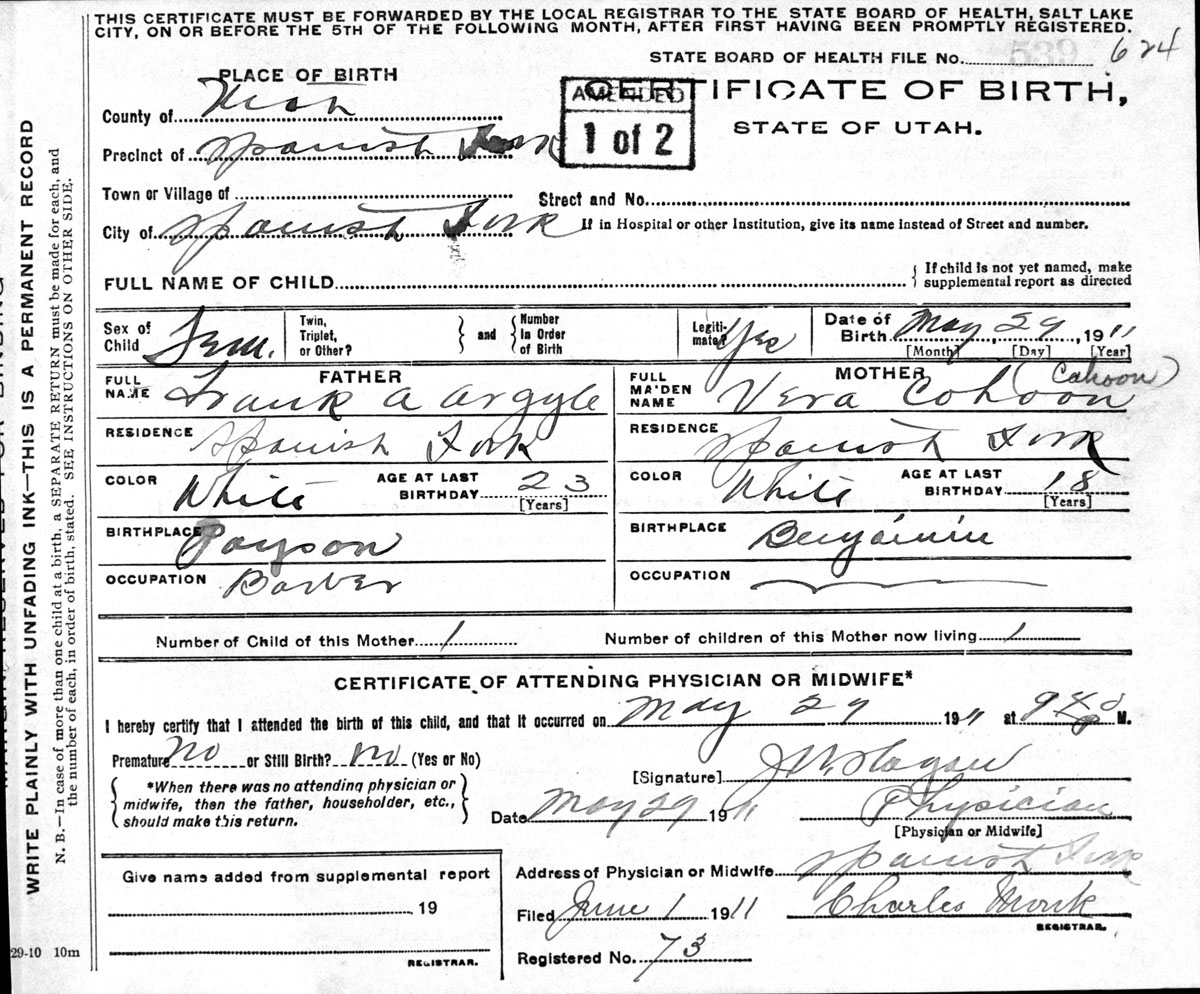 THIS CERTIFICATE MUST BE FORWARDED BY THE LOCAL REGISTRAR TO THE STATE BOARD OF HEALTH, SALT LAKE
CITY, ON OR BEFORE THE 5TH OF THE FOLLOWING MONTH, AFTER FIRST HAVING BEEN PROMPTLY REGISTERED.
STATE BOARD OF HEALTH FILE No. 624
PLACE OF BIRTH
CERTIFICATE OF BIRTH,
STATE OF UTAH.
AMENDED
1 of 2
County of Utah
Precinct of Spanish Fork
Town or Village of
Street and No.
City of Spanish Fork
If in Hospital or other Institution, give its name instead of Street and number.
FULL NAME OF CHILD
If child is not yet named, make
supplemental report as directed
Sex of Child Fem.
Twin, Triplet, or Other?
and
Number In Order of Birth
Legiti-mate? Yes
Date of Birth May 29, 1911
[Month] [Day] [Year]
FATHER
FULL NAME Frank A Argyle
RESIDENCE Spanish Fork
COLOR White
AGE AT LAST BIRTHDAY 23
[Years]
BIRTHPLACE Payson
OCCUPATION Barber
MOTHER
FULL MAIDEN NAME Vera Cohoon (Cahoon)
RESIDENCE Spanish Fork
COLOR White
AGE AT LAST BIRTHDAY 18
[Years]
BIRTHPLACE Benjamin
OCCUPATION
Number of Child of this Mother 1
Number of children of this Mother now living 1
CERTIFICATE OF ATTENDING PHYSICIAN OR MIDWIFE*
I hereby certify that I attended the birth of this child, and that it occurred on May 29 1911 at 9 40 M.
Premature No or Still Birth? No (Yes or No)
*When there was no attending physician or
midwife, then the father, householder, etc.,
should make this return.
[Signature] J W Hagan
Date May 29 1911 Physician
[Physician or Midwife]
Address of Physician or Midwife Spanish Fork
Filed June 1 1911 Charles Monk
REGISTRAR.
Registered No. 73
Give name added from supplemental report
19
REGISTRAR.
29-10 10m
WRITE PLAINLY WITH UNFADING INK—THIS IS A PERMANENT RECORD
N. B.—In case of more than one child at a birth, a SEPARATE RETURN must be made for each, and
the number of each, in order of birth, stated. SEE INSTRUCTIONS ON OTHER SIDE.